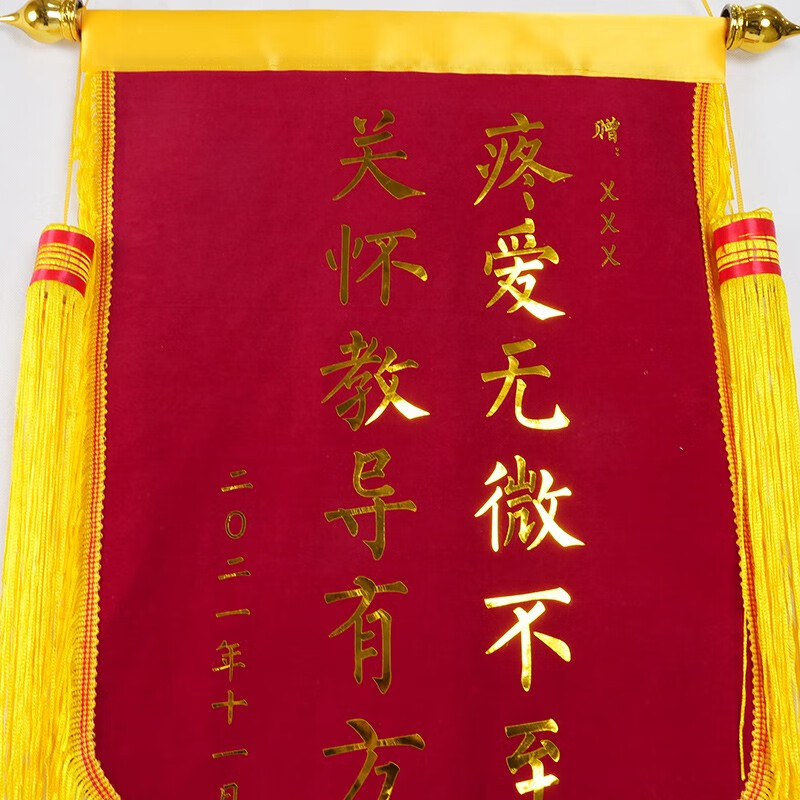 赠：XXX
疼爱无微不至
关怀教导有方
二〇二一年十一月